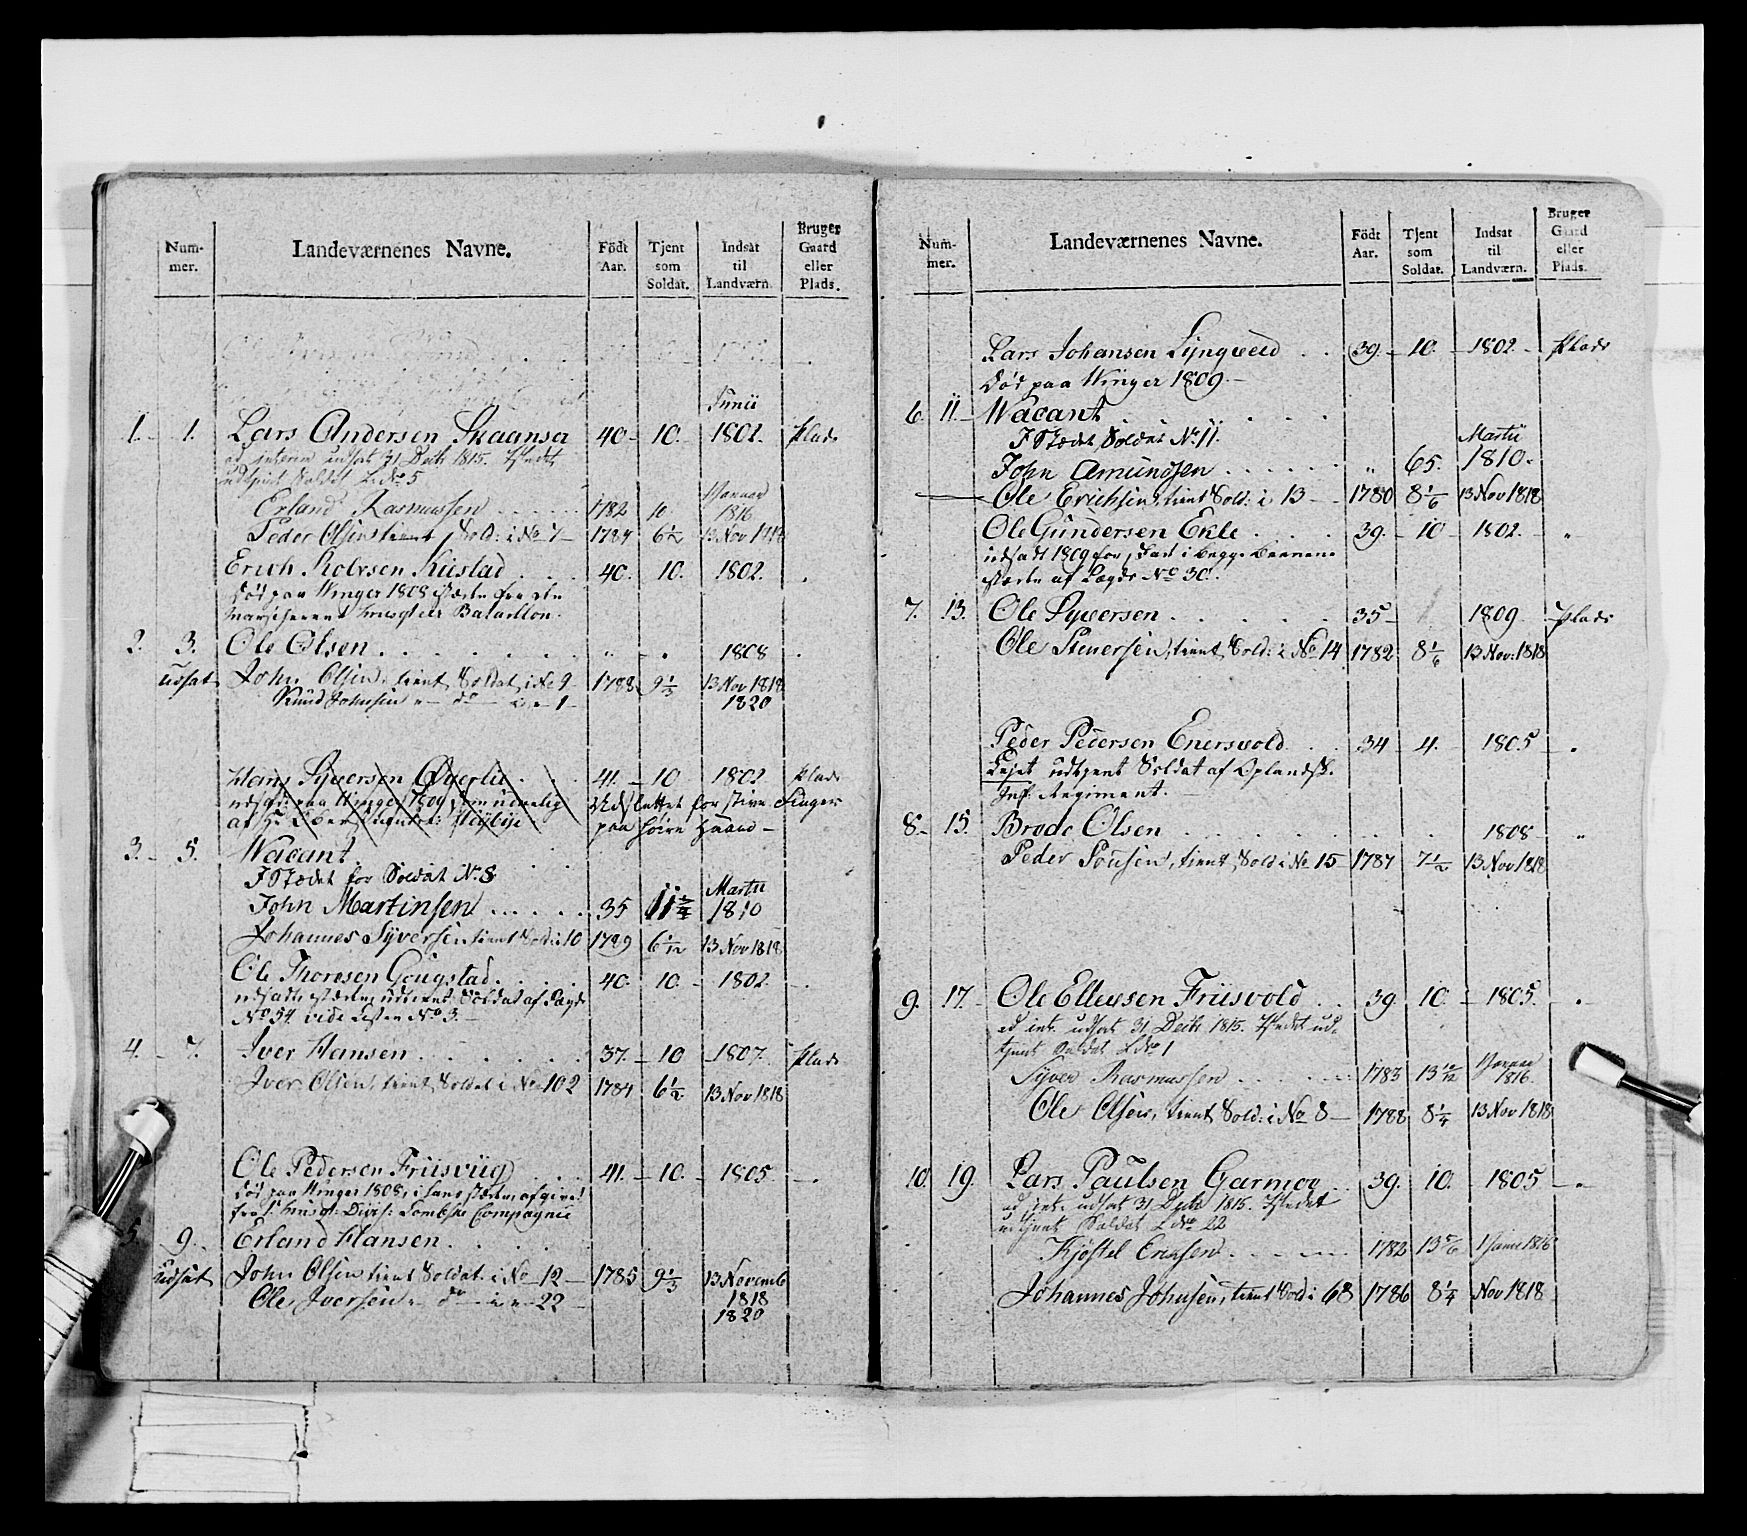 Num- mer. Landeværnenes Navne. Födt Aar. Tjent som Soldat. Indsat til Landværn. Bruger Gaard eller Plads.
Junii
1. 1. Lars Andersen Skaanser 40 10. 1802. Plads
ad interim udsat 31 Decbr 1815. Stedet
udtjent Soldat LNo 5
Erland Rasmussen 1782 10 1 Januar 1816
Peder Olsen tient Sold: i No 7 1784 6 1/2 13 Nov 1818
Erich Kolvsen Kustad 40. 10. 1802.
Död paa Winger 1808
marscherent musqteer Bataillon.
2. 3. Ole Olsen 1808
udsat John Olsen, tient Soldat i No 9 1788 9 1/3 13 Nov 1818
Knud Johnsen do 1 1820
Hans Syversen Öyerlie 41. 10 1802 Plads
udsat paa Winger 1809 Udslettet for stive Finger
paa höire Haand
3. 5. Wacant
I Stædet for Soldat No 8
John Martinsen 35 11 3/4 Martii 1810
Johannes Syversen tient Sold i 10 1789 6 1/12 13 Nov 1818
Ole Thoresen Gougstad 40. 10. 1802.
udsadt udtient Soldat af Lægd
No 54. vide Listen No 3.
4. 7. Iver Hansen 37. 10 1807. Plads
Iver Olsen, tient Soldat i No 102 1784 6 1/2 13 Nov 1818
Ole Pedersen Friisvüg 41. 10. 1805.
Död paa Winger 1808, i hans sted afgived
fra musqt: Divis: Tombske Compagnie
5. 9. Erland Hansen
udsat John Olsen tient Soldat i No 12 1785 9 1/3 13 Novemb 1818
Ole Iversen do 22 1820
Num- mer. Landeværnenes Navne. Födt Aar. Tjent som Soldat. Indsat til Landværn. Bruger Gaard eller Plads.
Lars Johansen Lyngveed 39. 10. 1802. Plads
Död paa Winger 1809.
6. 11. Wacant
I Stædet Soldat No 11.
John Amundsen " 65. Martii 1810.
Ole Erichsen, tient Sold: i 13 1780 8 1/6 13 Nov 1818
Ole Gundersen Ekle 39. 10 1802. "
udsadt 1809 for Fast i begge Beenene
af Lægds No 30.
7. 13. Ole Syversen 35 1809 Plads
Ole Stenersen, tient Sold: i No 14 1782 8 1/6 13 Nov: 1818
Peder Pedersen Enersvold 34 4. 1805 "
Lejet udtjent Soldat af Oplandsk.
Inf: Regiment.
8. 15. Brode Olsen 1808 "
Peder Pousen, tient Sold i No 15 1787 7 1/2 13 Nov 1818
9. 17. Ole Ellevsen Friisvold 39. 10. 1805. "
ad int. udsat 31 Decbr 1815. Stedet ud-
tjent Soldat LNo 1
Syver Rasmussen 1783 13 10/12 1 Januar 1816.
Ole Olsen, tient Sold: i No 8 1788 8 1/4 13 Nov 1818
10. 19. Lars Paulsen Garmoe 39. 10. 1805 "
ad int. udsat 31 Decbr 1815. Stedet
udtjent Soldat LNo 22
Kjöstel Ericsen 1782 13 5/6 1 Janu 1816
Johannes Johnsen, tient Sold i 68 1786 8 1/4 Nov 1818